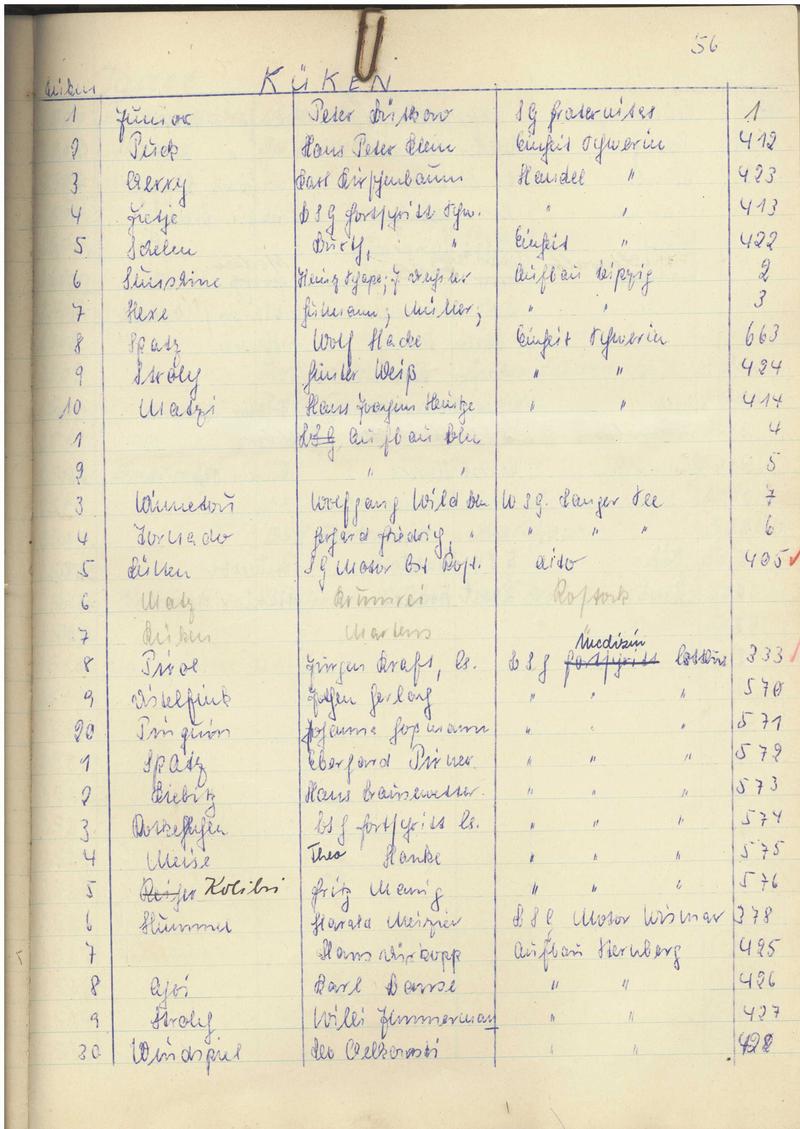 56
KÜKEN
1 Junior Peter SG Fraternitas 1
2 Puck Hans Peter Klein Einheit Schwerin 412
3 Karl Kirschenbaum Handel " 423
4 Fietje BSG Fortschritt Schw. " " 413
5 " Einheit " 422
6 Heinz Aufbau Leipzig 2
7 Hexe Müller; " " 3
8 Spatz Wolf Hacke Einheit Schwerin 663
9 Strolch Günter Weiß " " 424
10 Matzi Hans Joachim Heintze " " 414
1 BSG Aufbau Bln 4
2 " " 5
3 Winnetou Wolfgang Wild Bln WSG. Langer See 7
4 Tornado Gerhard Friedrich, " " " " 6
5 Küken SG Motor Ost Rost. dito 405
6 Matz Rostock
7 Küken Martens
Medizin
8 Pirol Jürgen Kraft, Cs. BSG Fortschritt Cottbus 333
9 Distelfink Jochen Gerlach " " " 570
20 Pinguin Johanna " " " 571
1 Spatz Eberhard Pirner " " " 572
2 Kiebitz Hans " " " 573
3 Rotkehlchen BSG Fortschritt Cs. " " " 574
4 Meise Theo Hanke " " " 575
5 Kolibri Fritz " " " 576
6 Hummel Harald BSG Motor Wismar 378
7 Hans Aufbau Sternberg 425
8 Karl " " 426
9 Strolch Willi Zimmermann " " 427
30 Windspiel Leo " " 428